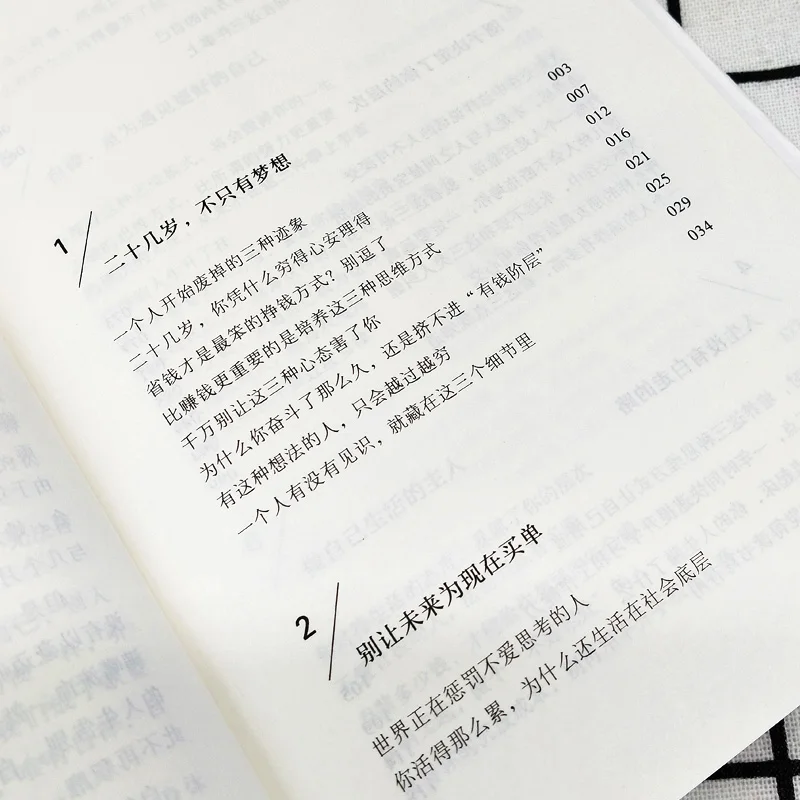 1 / 二十几岁，不只有梦想
一个人开始废掉的三种迹象 003
二十几岁，你凭什么穷得心安理得 007
省钱才是最笨的挣钱方式？别逗了 012
比赚钱更重要的是培养这三种思维方式 016
千万别让这三种心态害了你 021
为什么你奋斗了那么久，还是挤不进“有钱阶层” 025
有这种想法的人，只会越过越穷 029
一个人有没有见识，就藏在这三个细节里 034
2 / 别让未来为现在买单
世界正在惩罚不爱思考的人
你活得那么累，为什么还生活在社会底层